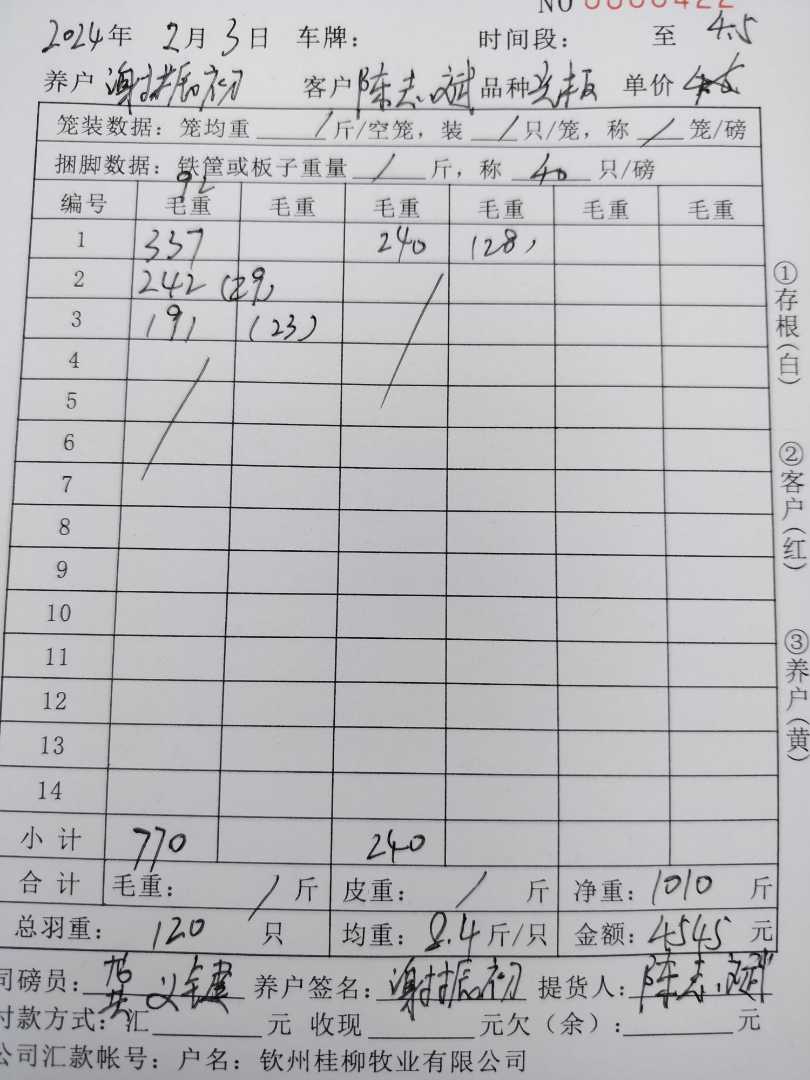 NO 0000422
2024年 2月3日 车牌: 时间段: 至 4.5
养户 客户 陈志斌 品种 单价
笼装数据: 笼均重 / 斤/空笼, 装 / 只/笼, 称 / 笼/磅
捆脚数据: 铁筐或板子重量 / 斤, 称 40 只/磅
92
编号 毛重 毛重 毛重 毛重 毛重 毛重
1 337 240 (28)
2 242 (29)
3 191 (23)
4
5
6
7
8
9
10
11
12
13
14
小计 770 240
合计 毛重: / 斤 皮重: / 斤 净重: 1010 斤
总羽重: 120 只 均重: 8.4 斤/只 金额: 4545 元
司磅员: 养户签名: 提货人: 陈志斌
付款方式: 汇 元 收现 元欠(余): 元
公司汇款帐号: 户名: 钦州桂柳牧业有限公司
①存根(白)
②客户(红)
③养户(黄)